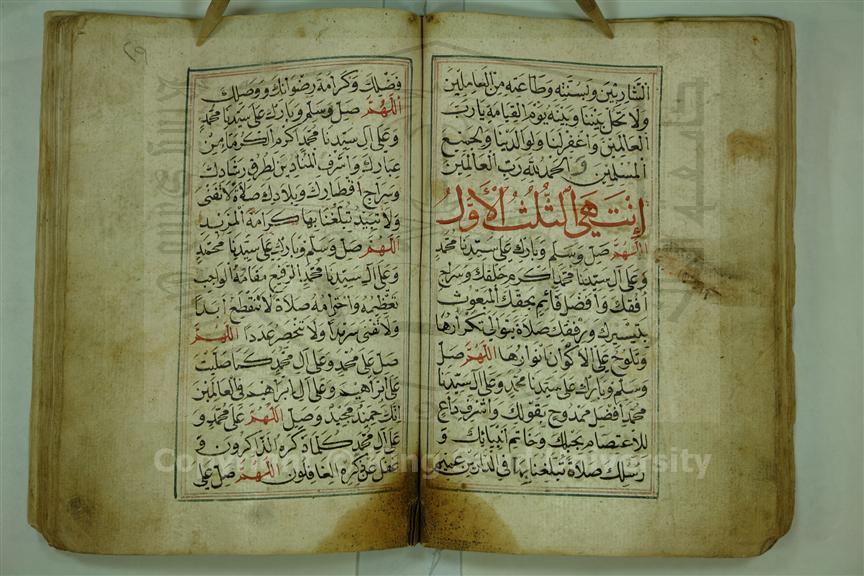 الشاربين وبسنته وطاعته من العاملين
ولا تحل بيننا وبينه يوم القيامة يارب
العالمين واغفر لنا ولوالدينا ولجميع
المسلمين والحمد لله رب العالمين
انتهى الثلث الأول
اللهم صل وسلم وبارك على سيدنا محمد
وعلى آل سيدنا محمد اكرم خلقك وسراج
افقك وافضل قائم بحقك المبعوث
بتيسيرك ورفقك صلاة يتوالى تكرارها
وتلوح على الاكوان انوارها اللهم صل
وسلم وبارك على سيدنا محمد وعلى آل سيدنا
محمد افضل ممدوح بقولك واشرف داع
للاعتصام بحبلك وخاتم انبيائك و
رسلك صلاة تبلغنا بها في الدارين عميم
فضلك وكرامة رضوانك ووصلك
اللهم صل وسلم وبارك على سيدنا محمد
وعلى آل سيدنا محمد اكرم الكرماء من
عبادك واشرف المنادين لطرق رشادك
وسراج اقطارك وبلادك صلاة لا تفنى
ولا تبيد تبلغنا بها كرامة المزيد
اللهم صل وسلم وبارك على سيدنا محمد
وعلى آل سيدنا محمد الرفيع مقامه الواجب
تعظيمه واحترامه صلاة لا تنقطع ابدا
ولا تفنى سرمدا ولا تنحصر عددا اللهم
صل على محمد وعلى آل محمد كما صليت
على ابراهيم وعلى آل ابراهيم في العالمين
انك حميد مجيد وصل اللهم على محمد و
على آل محمد كلما ذكره الذاكرون و
غفل عن ذكره الغافلون اللهم صل على
Copyright © King Saud University